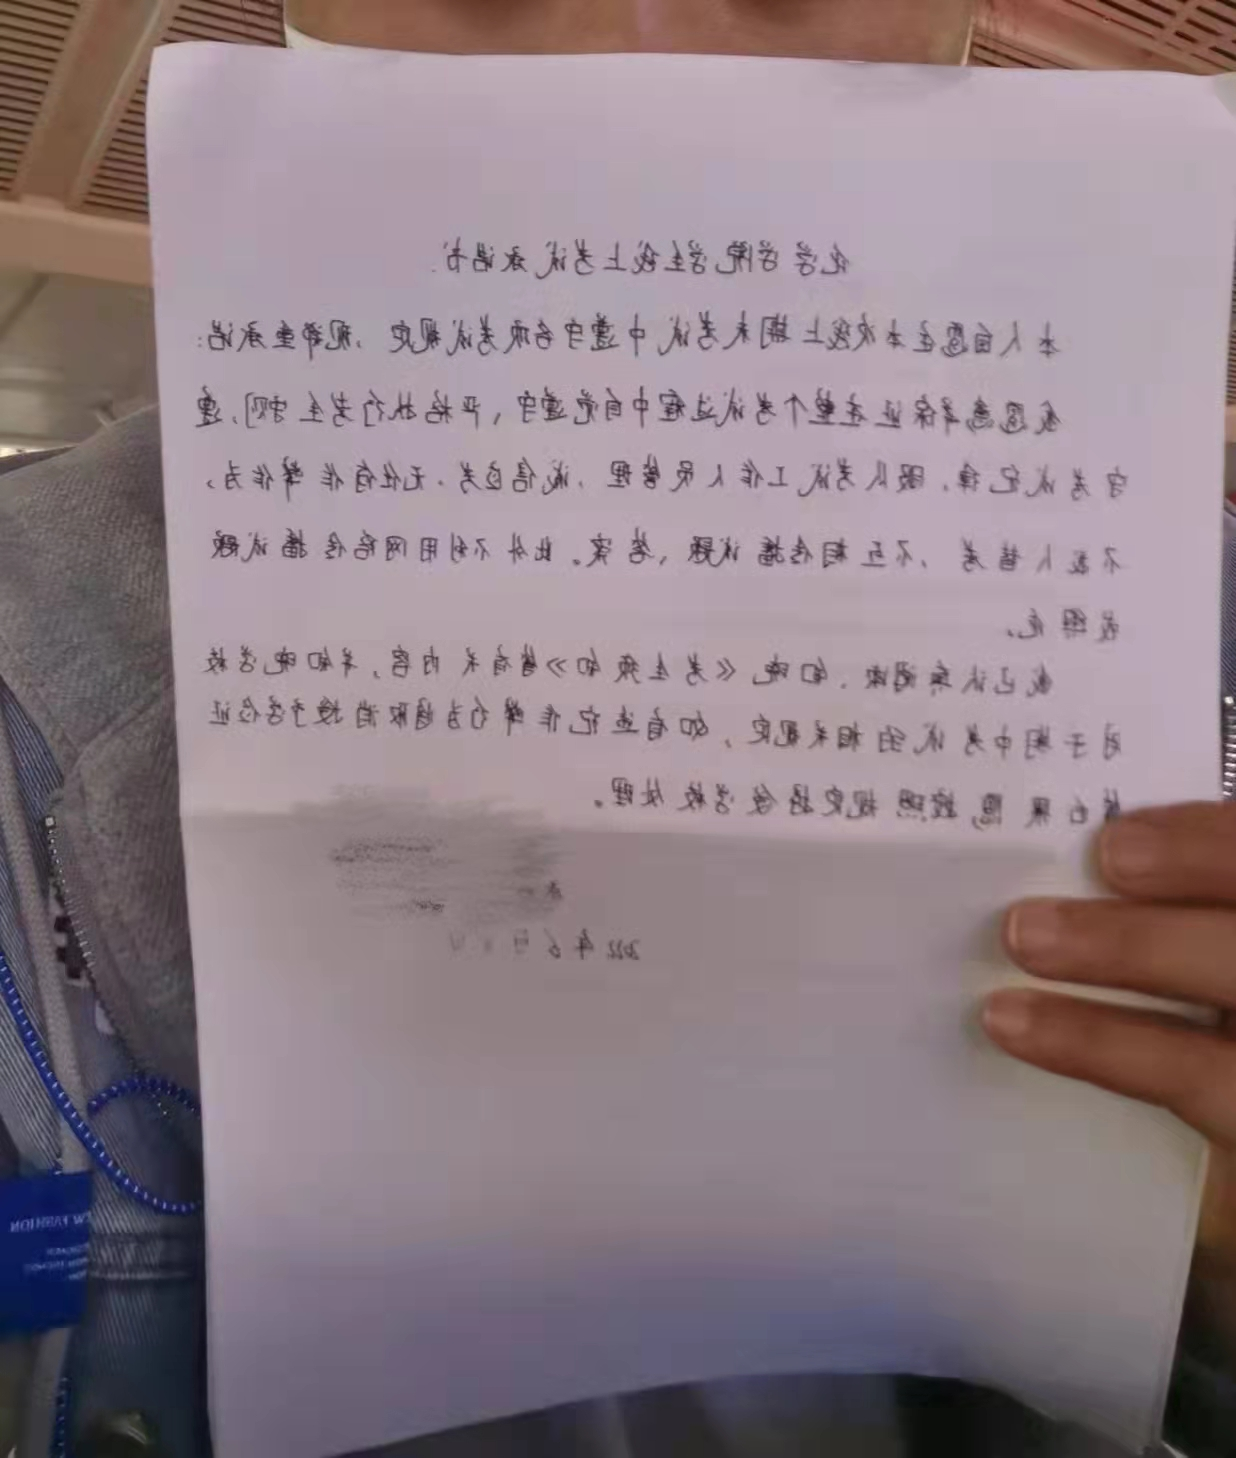 化学学院学生线上考试承诺书.
本人自愿在本次线上期末考试中遵守各项考试规定,现郑重承诺:
我愿意并保证在整个考试过程中自觉遵守、严格执行考生守则,遵
守考试纪律,服从考试工作人员管理,诚信应考,无任何作弊作为,
不找人替考,不互相传播试题、答案。此外不利用网络传播试题
及照片。
我已认真阅读、知晓《考生须知》等有关内容,并知晓学校
对于期中考试的相关规定,如有违纪作弊行为自愿取消授予学位证
愿按照规定接受学校处理。
2022年6月
W FASHION